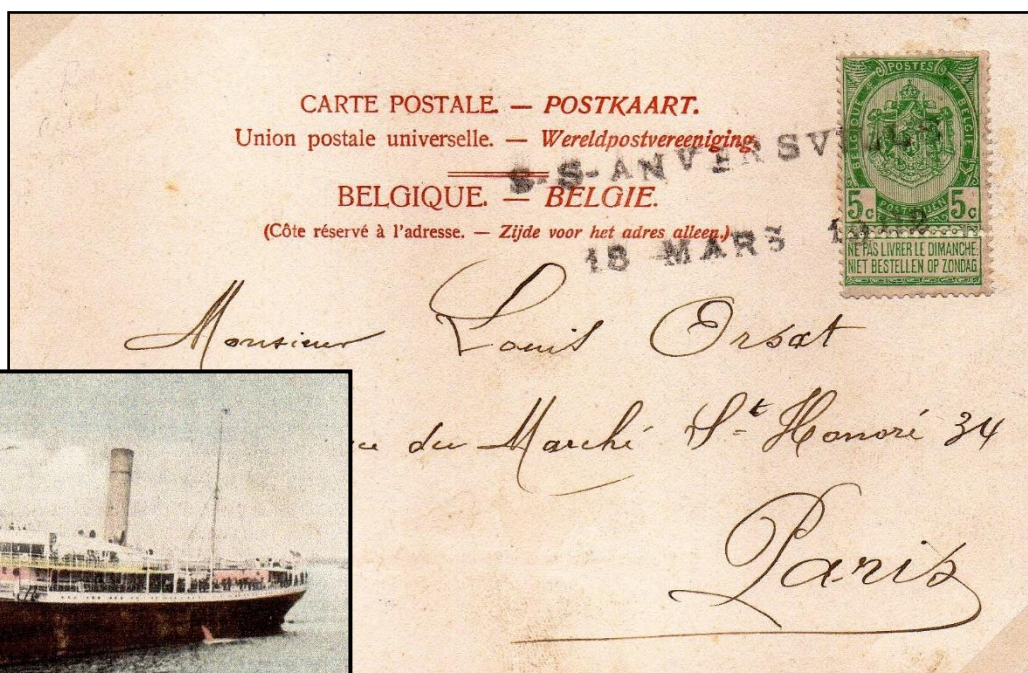 CARTE POSTALE. — POSTKAART.
Union postale universelle. — Wereldpostvereeniging.
BELGIQUE. — BELGIE.
(Côte réservé à l'adresse. — Zijde voor het adres alleen.)
S-S-ANVERSVILLE
18 MARS
POSTES
BELGIQUE
BELGIE
POSTERIJEN
5c 5c
NE PAS LIVRER LE DIMANCHE.
NIET BESTELLEN OP ZONDAG.
Monsieur Louis Orsat
du Marché St Honoré 34
Paris